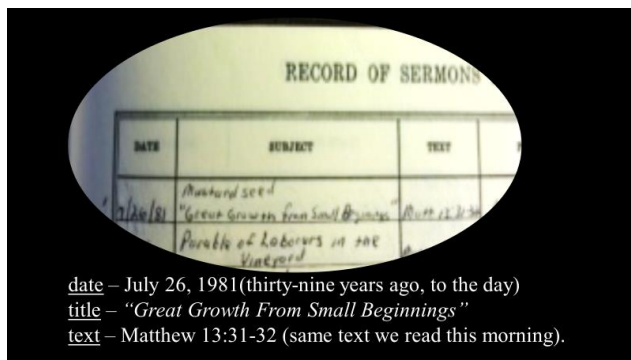 RECORD OF SERMONS
DATE SUBJECT TEXT
Mustard seed
7/26/81 "Great Growth from Small Beginnings" Matt 13:31-32
Parable of Laborers in the
Vineyard
date – July 26, 1981(thirty-nine years ago, to the day)
title – “Great Growth From Small Beginnings”
text – Matthew 13:31-32 (same text we read this morning).